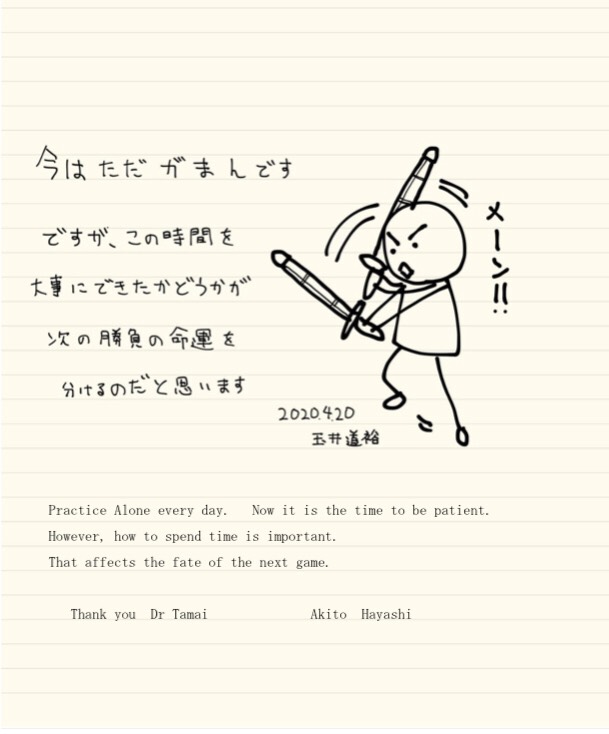 今はただがまんです
ですが、この時間を
大事にできたかどうかが
次の勝負の命運を
分けるのだと思います
メーン!!
2020.4.20
玉井道裕
Practice Alone every day. Now it is the time to be patient.
However, how to spend time is important.
That affects the fate of the next game.
Thank you Dr Tamai Akito Hayashi